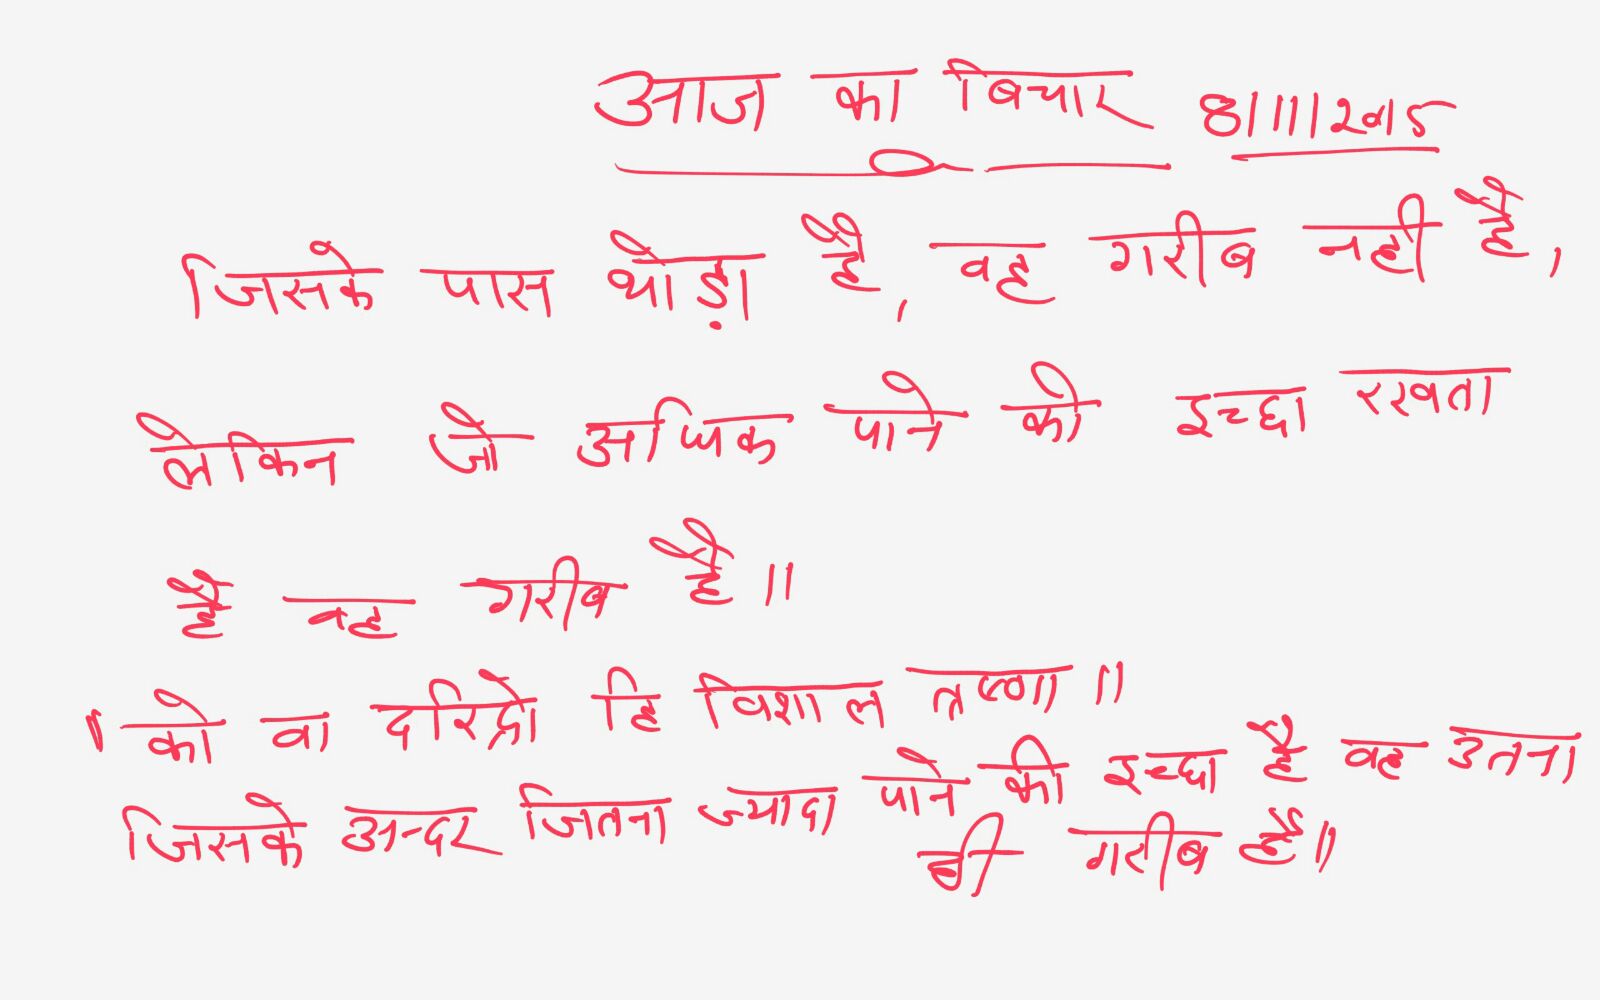 आज का बिचार 8/11/2015
जिसके पास थोड़ा है, वह गरीब नही है,
लेकिन जो अधिक पाने की इच्छा रखता
है वह गरीब है॥
"को वा दरिद्रो हि विशाल त्रष्णा॥
जिसके अन्दर जितना ज्यादा पाने की इच्छा है वह उतना
ही गरीब है॥